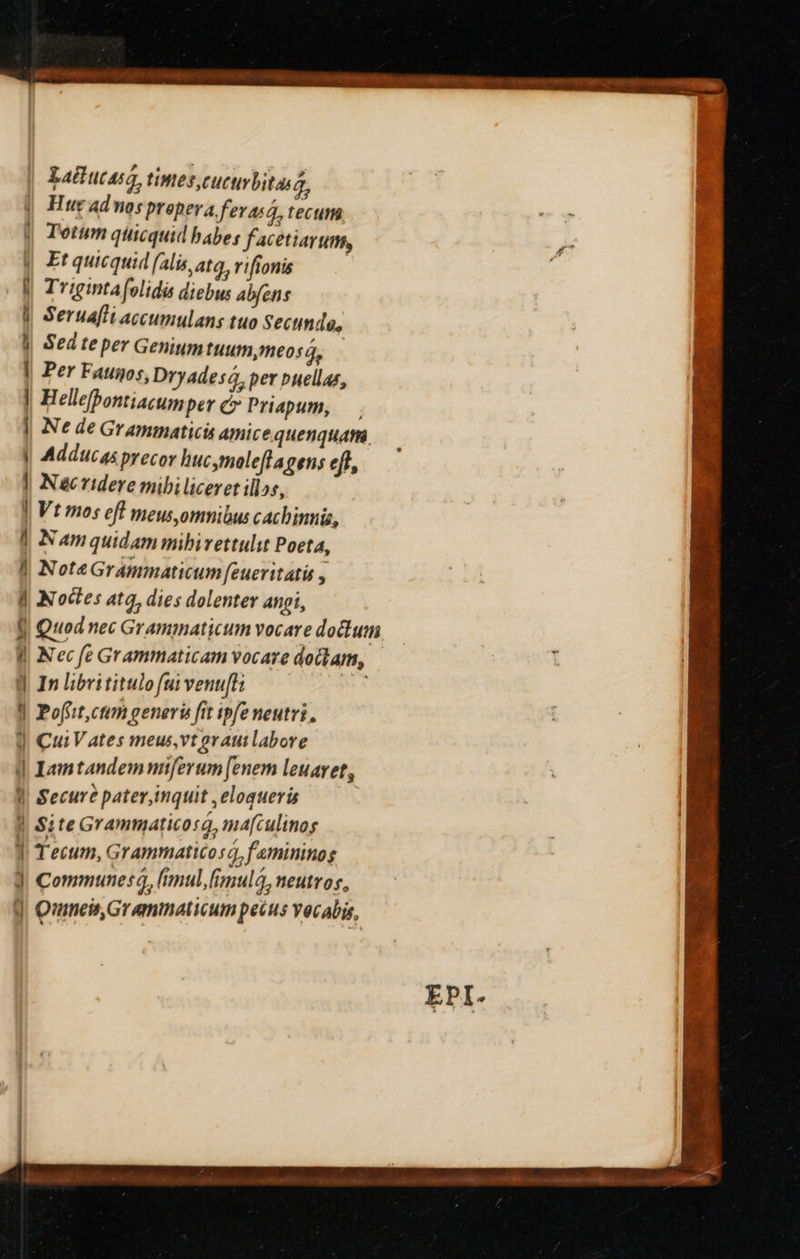 Lactucasq́, times,cucurbitasq́,
Huc ad nos propera,ferasq́, tecum
Totum quicquid habes facetiarum,
Et quicquid ſalis,atq, riſionis
Triginta ſolidis diebus abſens
Seruaſti accumulans tuo Secundo,
Sed te per Genium tuum,meosq́,
Per Faunos, Dryadesq́, per puellas,
Helleſpontiacum per & Priapum,
Ne de Grammaticis amice quenquam
Adducas precor huc,moleſta gens eſt,
Nec ridere mihi liceret illos,
Vt mos eſt meus,omnibus cachinnis,
Nam quidam mihi rettulit Poeta,
Notæ Grammaticum ſeueritatis,
Noctes atq, dies dolenter angi,
Quod nec Grammaticum vocare doctum
Nec ſe Grammaticam vocare doctam,
In libri titulo ſui venuſti
Poſſit,cum generis ſit ipſe neutri,
Cui Vates meus,vt graui labore
Iam tandem miſerum ſenem leuaret,
Securè pater,inquit, eloqueris
Si te Grammaticosq́, maſculinos
Tecum, Grammaticosq́, fæmininos
Communesq́, ſimul,ſimulq́, neutros,
Omneis,Grammaticum pecus vocabis,
EPI-